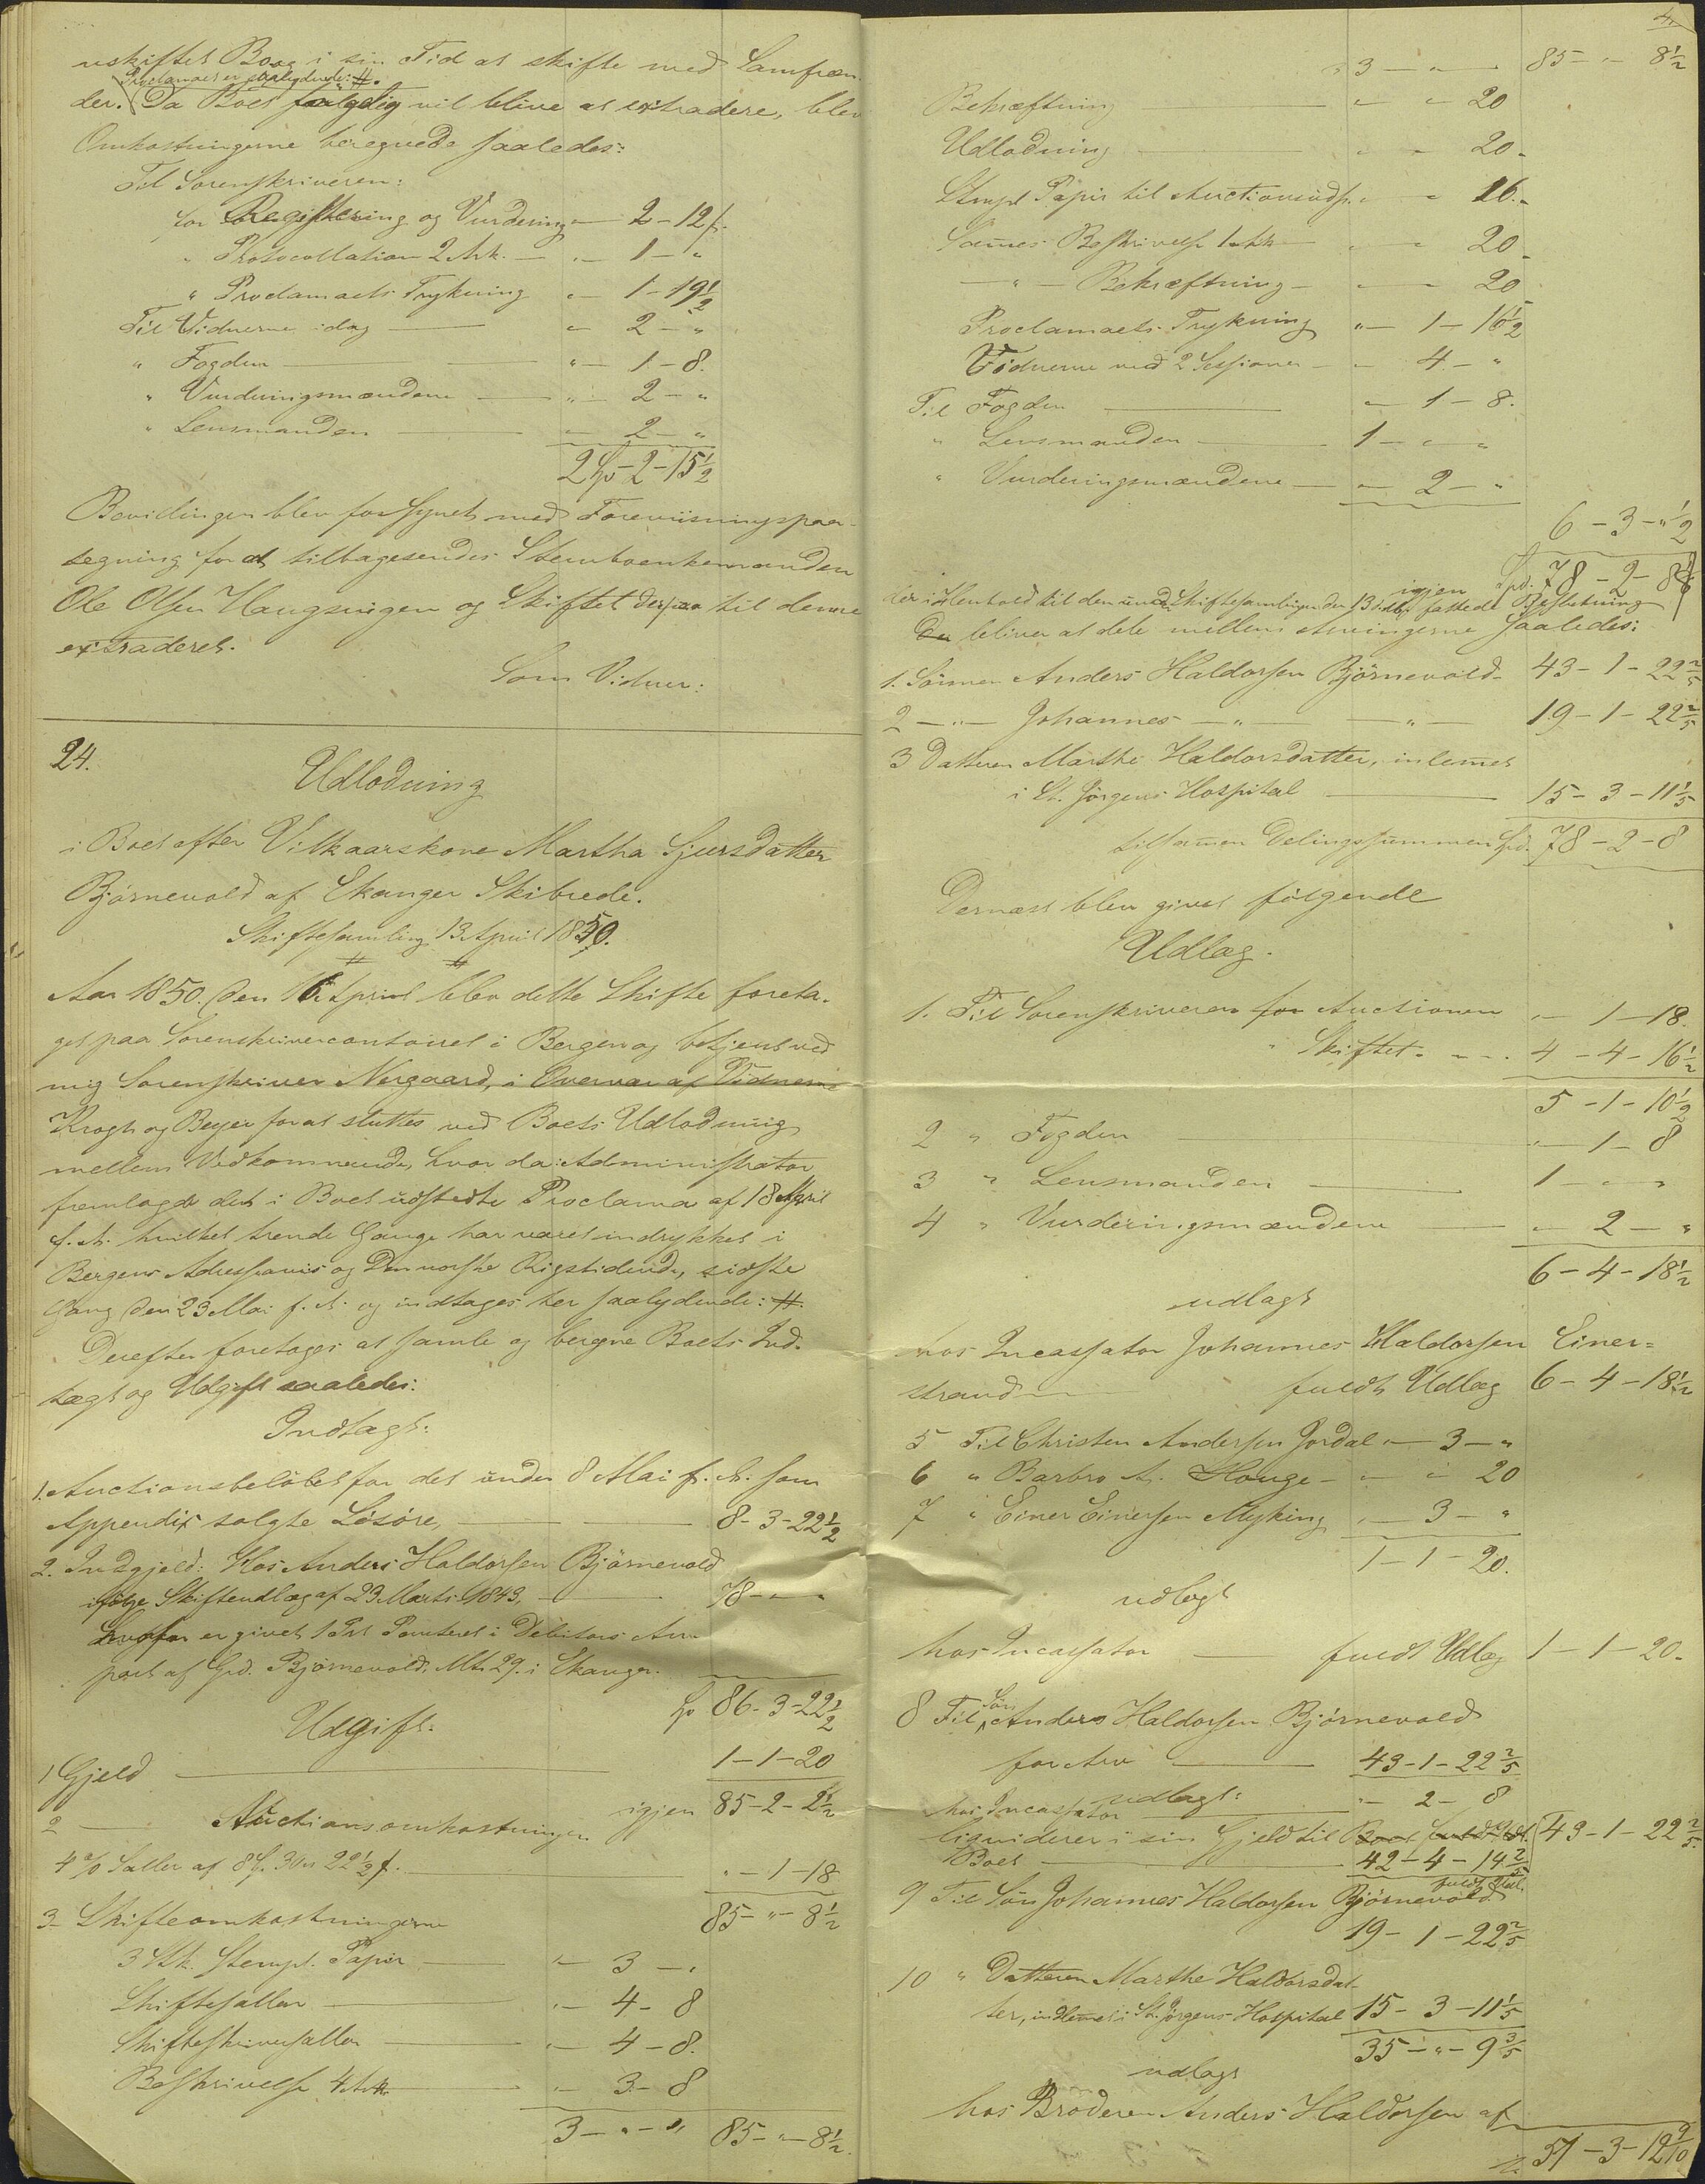 uskiftet Boog i sin Tid at skifte med Samfræn-
Proclamaet er saalydende: #.
der. Da Boet følgelig vil blive at extradere, blev
Omkostningerne beregnede saaledes:
Til Sorenskriveren:
for Registering og Vurdering " - 2 - 12 s.
" Protocollation 2 Ark. " - 1 - "
" Proclamaets Trykning " - 1 - 19½
Til Vidnerne idag " - 2 - "
" Fogden " - 1 - 8.
" Vurderingsmændene " - 2 - "
" Lensmanden " - 2 - "
2 Sp - 2 - 15½
Bevillingen blev forsynet med Foreviisningspaa-
tegning for at tilbagesendes Stervboenkemanden
Ole Olsen Haugsvigen og Skiftet derpaa til denne
extraderet.
Som Vidner:
24.
Udlodning
i Boet efter Vilkaarskone Martha Sjursdatter
Bjørnevold af Ekanger Skibrede.
Skiftesamling 13 April 1850.
Aar 1850. den 16 April blev dette Skifte foreta-
get paa Sorenskrivercontoiret i Bergen og betjent ved
mig Sorenskriver Nergaard, i Overvær af Vidnerne
Krogh og Beyer for at sluttes ved Boets Udlodning
mellem Vedkommende, hvor da: Administrator
fremlagde det i Boet udstedte Proclama af 18 April
f. A. hvilket trende Gange har været indrykket i
Bergens Adresseavis og Den norske Rigstidende, sidste
Gang den 23 Mai f. A. og indtages her saalydende: #.
Derefter foretoges at samle og beregne Boets Ind-
tægt og Udgift saaledes:
Indtægt:
1. Auctionsbeløbet for det under 8 Mai f. A. som
Appendix solgte Løsøre, 8 - 3 - 22½
2. Indgjeld: Hos Anders Haldorsen Bjørnevold
ifølge Skifteudlæg af 23 Marts 1843, 78 - " - "
hvorfor er givet 1 Prt Panteret i Debitors An-
part af Grd. Bjørnevold, Mtr. 29. i Ekanger.
Sp 86 - 3 - 22½
Udgift:
1 Gjeld 1 - 1 - 20
igjen 85 - 2 - 2½
2 Auctionsomkostninger
4 % Saller af 8 Sp. 3 Ort 22½ s. " - 1 - 18
85 - " - 8½
3 - Skifteomkostningerne
3 Stk. Stempl. Papir " - 3 - "
Skiftesaller " - 4 - 8
Skifteskriversaller " - 4 - 8.
Beskrivelse 4 Ark " - 3 - 8
3 - " - " 85 - " - 8½.
4.
3 - " - " 85 - " - 8½
Bekræftning " - " - 20
Udlodning " - " - 20.
Stmpl Papir til Auctionsudsk. " - " 16.
Sammes Beskrivelse 1 Ark " - " 20
- " - Bekræftning - " - " 20
Proclamaets Trykning " - 1 - 16½
Vidnerne ved 2 Sessioner - " 4 - "
Til Fogden " - 1 - 8.
" Lensmanden 1 - " - "
" Vurderingsmændene " - 2 - "
6 - 3 - "½
igjen Spd. 78 - 2 - 8
der i Henhold til den under Skiftesamlingen den 13 ds. fattede Beslutning
bliver at dele mellem Arvingerne saaledes:
1. Sønnen Anders Haldorsen Bjørnevold 43 - 1 - 22⅖
2 - " - Johannes - " - - " - 19 - 1 - 22⅖
3 Datteren Marthe Haldorsdatter, inlemet
i St. Jørgens Hospital 15 - 3 - 11⅕
tilsammen Delingssummen Spd. 78 - 2 - 8
Dernæst blev givet følgende
Udlæg.
1. Til Sorenskriveren for Auctionen " - 1 - 18.
" Skiftet 4 - 4 - 16½
5 - 1 - 10½
2 " Fogden " - 1 - 8
3 " Lensmanden 1 - " - "
4 " Vurderingsmændene " - 2 - "
6 - 4 - 18½
udlagt
hos Incassator Johannes Haldorsen Einer-
strand fuldt Udlæg 6 - 4 - 18½
5 Til Christen Andersen Jordal " - 3 - "
6 " Barbro A. Houge " - " 20
7 " Einer Einersen Myking " - 3 - "
1 - 1 - 20.
udlagt
hos Incassator fuldt Udlæg 1 - 1 - 20.
8 Til Søn Anders Haldorsen Bjørnevold
for Arv 43 - 1 - 22⅖
udlagt:
hos Incassator " - 2 - 8
liqviderer i sin Gjeld til 43 - 1 - 22⅖
Boet 42 - 4 - 14⅖
fuldt Udl.
9 Til Søn Johannes Haldorsen Bjørnevold
19 - 1 - 22⅖
10 " Datteren Marthe Haldorsdat-
ter, indlemet i St. Jørgens Hospital 15 - 3 - 11⅕
35 - " - 9⅗
udlagt
hos Broderen Anders Haldorsen af
51 - 3 - 12 9/10